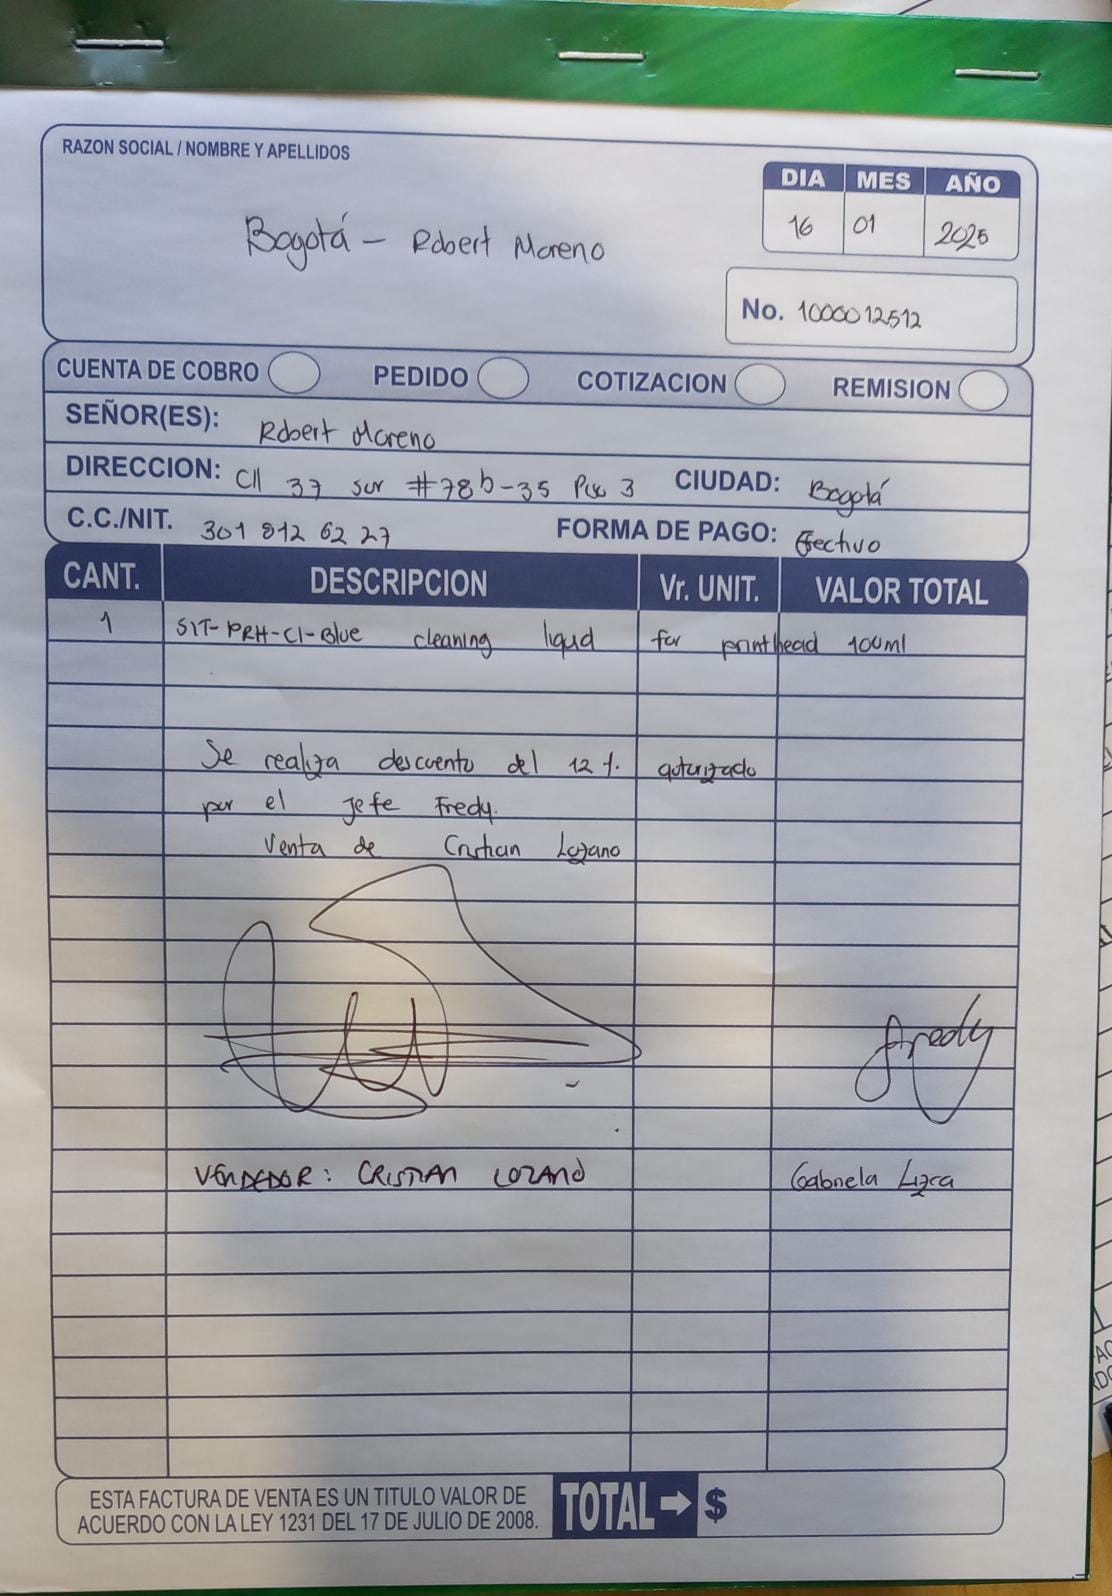 RAZON SOCIAL / NOMBRE Y APELLIDOS
DIA MES AÑO
16 01 2025
Bogotá - Robert Moreno
No. 1000012512
CUENTA DE COBRO PEDIDO COTIZACION REMISION
SEÑOR(ES): Robert Moreno
DIRECCION: Cll 37 sur #78b-35 Piso 3 CIUDAD: Bogotá
C.C./NIT. 301 812 62 27 FORMA DE PAGO: Efectivo
CANT. DESCRIPCION Vr. UNIT. VALOR TOTAL
1 SIT-PRH-Cl-Blue cleaning liquid for printhead 100ml
Se realiza descuento del 12 %. autorizado
por el jefe Fredy.
Venta de Cristian Lozano
Fredy
VENDEDOR: CRISTIAN LOZANO Gabriela
ESTA FACTURA DE VENTA ES UN TITULO VALOR DE
ACUERDO CON LA LEY 1231 DEL 17 DE JULIO DE 2008.
TOTAL → $